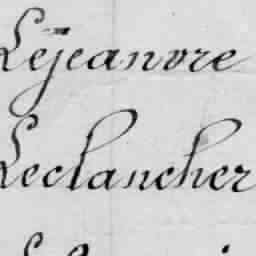 Lejeanvre
Leclancher